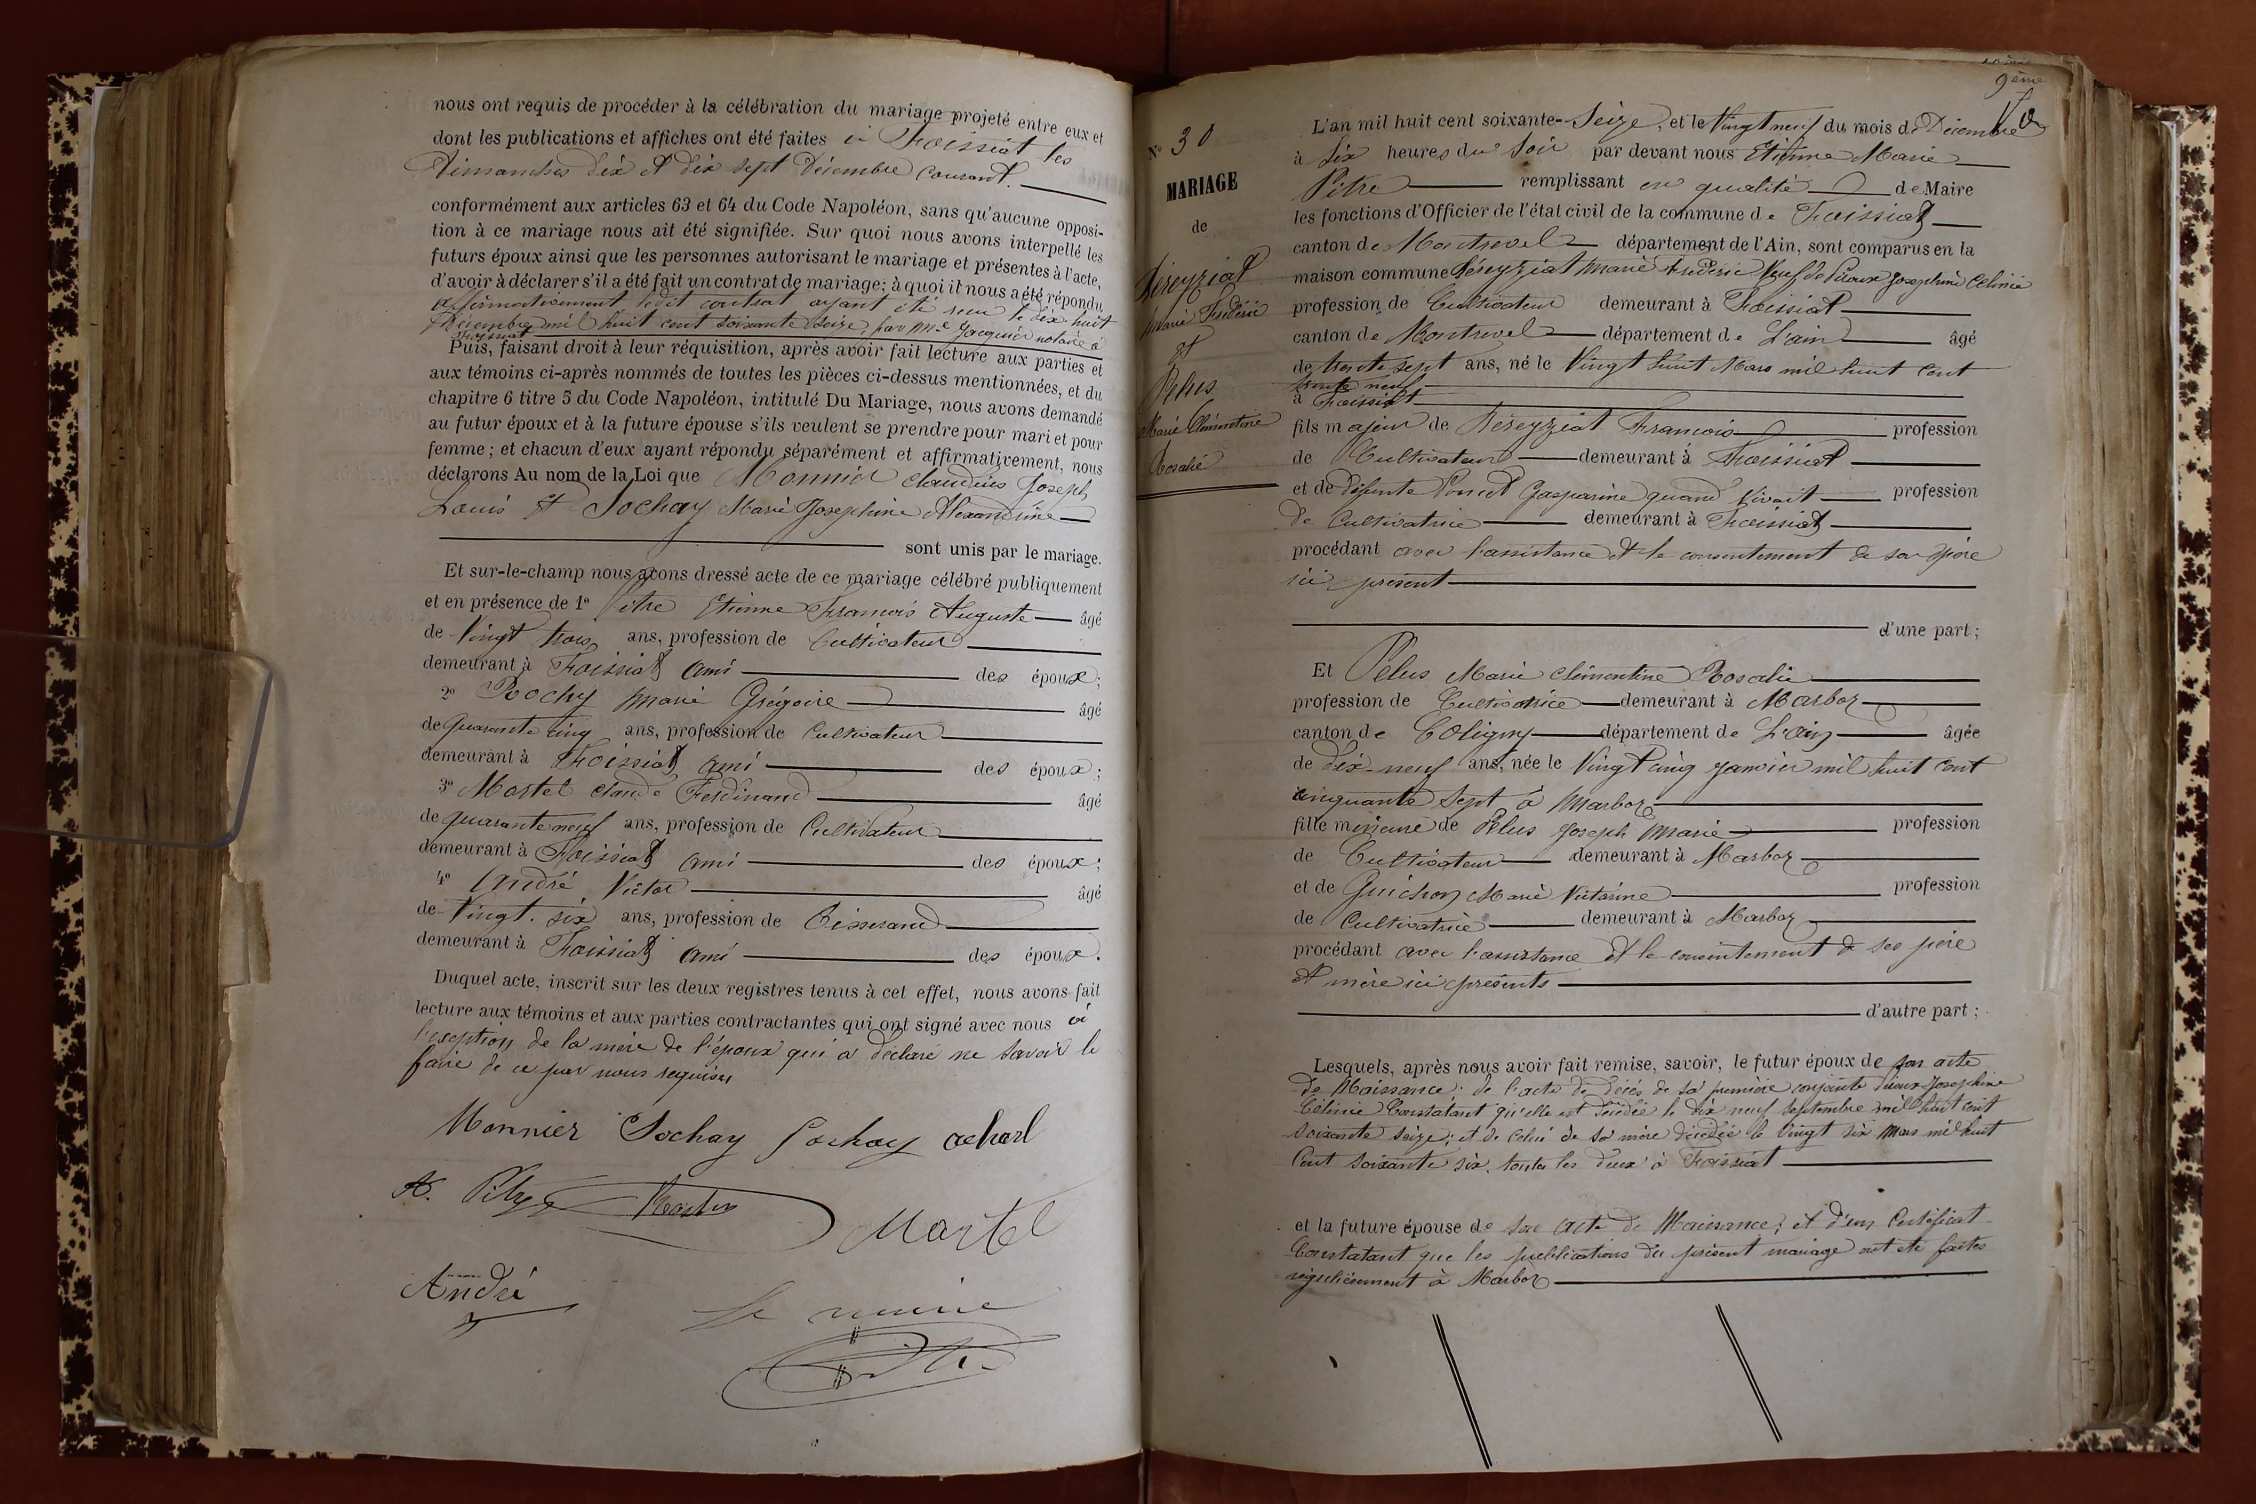 nous ont requis de procéder à la célébration du mariage projeté entre eux et
dont les publications et affiches ont été faites à Foissiat les
Dimanches dix et dix sept Décembre courant.
conformément aux articles 63 et 64 du Code Napoléon, sans qu'aucune opposi-
tion à ce mariage nous ait été signifiée. Sur quoi nous avons interpellé les
futurs époux ainsi que les personnes autorisant le mariage et présentes à l'acte,
d'avoir à déclarer s'il a été fait un contrat de mariage; à quoi il nous a été répondu
affirmativement ledit contrat ayant été reçu le dix-huit
Décembre mil huit cent soixante seize, par Me Jacquier notaire à
Foissiat
Puis, faisant droit à leur réquisition, après avoir fait lecture aux parties et
aux témoins ci-après nommés de toutes les pièces ci-dessus mentionnées, et du
chapitre 6 titre 5 du Code Napoléon, intitulé Du Mariage, nous avons demandé
au futur époux et à la future épouse s'ils veulent se prendre pour mari et pour
femme; et chacun d'eux ayant répondu séparément et affirmativement, nous
déclarons Au nom de la Loi que Monnier Claudius Joseph
Louis et Sochay Marie Josephine Alexandrine
sont unis par le mariage.
Et sur-le-champ nous avons dressé acte de ce mariage célébré publiquement
et en présence de 1° Pitre Etienne François Auguste âgé
de Vingt trois ans, profession de Cultivateur
demeurant à Foissiat ami des époux;
2° Rochy Marie Grégoire âgé
de quarante cinq ans, profession de Cultivateur
demeurant à Foissiat ami des époux;
3° Martel Claude Ferdinand âgé
de quarante neuf ans, profession de Cultivateur
demeurant à Foissiat ami des époux;
4° André Victor âgé
de Vingt-six ans, profession de Tisserand
demeurant à Foissiat ami des époux.
Duquel acte, inscrit sur les deux registres tenus à cet effet, nous avons fait
lecture aux témoins et aux parties contractantes qui ont signé avec nous à
l'exception de la mère de l'époux qui a déclaré ne savoir le
faire de ce par nous requise
Monnier Sochay Sochay
A. Pitre
Martel
André
Le maire
Pitre
9ème
N° 30
MARIAGE
de
Déreyziat
Marie Frédéric
et
Pelus
Marie Clémentine
Rosalie
L'an mil huit cent soixante-Seize, et le Vingt neuf du mois de Décembre
à Six heures du Soir par devant nous Etienne Marie
Pitre remplissant en qualité de Maire
les fonctions d'Officier de l'état civil de la commune de Foissiat
canton de Montrevel département de l'Ain, sont comparus en la
maison commune Déreyziat Marie Frédéric Veuf de Josephine Célinie
profession de Cultivateur demeurant à Foissiat
canton de Montrevel département de L'ain âgé
de trente sept ans, né le Vingt huit Mars mil huit cent
trente neuf
à Foissiat
fils majeur de Déreyziat François profession
de Cultivateur demeurant à Foissiat
et de défunte Poncet Gasparine quand vivait profession
de Cultivatrice demeurant à Foissiat
procédant avec l'assistance et le consentement de son père
ici présent
d'une part;
Et Pelus Marie Clémentine Rosalie
profession de Cultivatrice demeurant à Marboz
canton de Coligny département de L'ain âgée
de dix-neuf ans, née le Vingt cinq Janvier mil huit cent
cinquante sept à Marboz
fille mineure de Pelus Joseph Marie profession
de Cultivateur demeurant à Marboz
et de Guichon Marie Victorine profession
de Cultivatrice demeurant à Marboz
procédant avec l'assistance et le consentement de ses père
et mère ici présents
d'autre part;
Lesquels, après nous avoir fait remise, savoir, le futur époux de son acte
de Naissance; de l'acte de Décès de sa première conjointe Josephine
Célinie Constatant qu'elle est décédée le dix neuf Septembre mil huit cent
soixante seize; et de celui de sa mère décédée le Vingt six Mars mil huit
Cent soixante six, toutes les deux à Foissiat
et la future épouse de son acte de Naissance; et d'un Certificat
Constatant que les publications du présent mariage ont été faites
régulièrement à Marboz